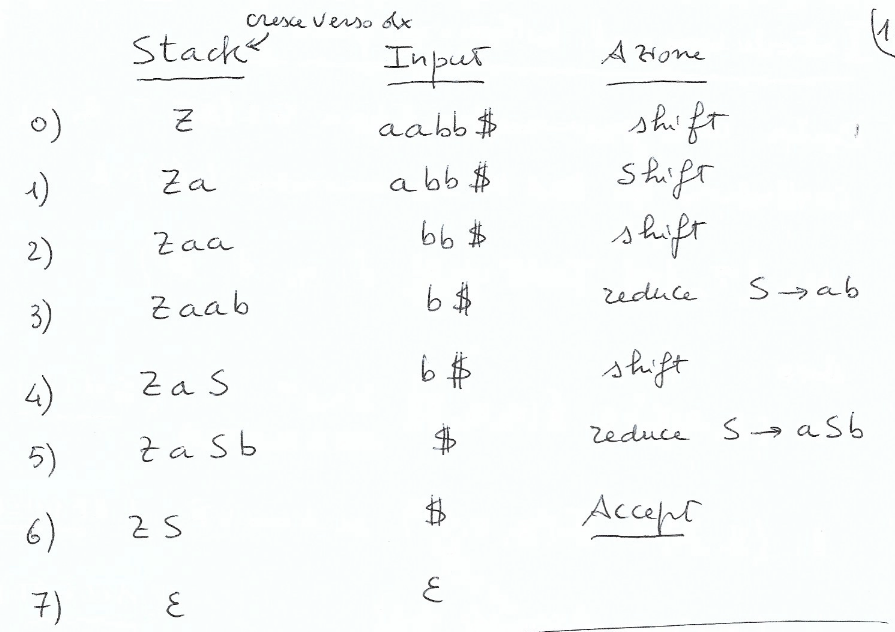 cresce verso dx
Stack Input Azione (1
0) Z aabb$ shift
1) Za abb$ Shift
2) Zaa bb$ shift
3) Zaab b$ reduce S → ab
4) ZaS b$ shift
5) ZaSb $ reduce S → aSb
6) ZS $ Accept
7) ε ε